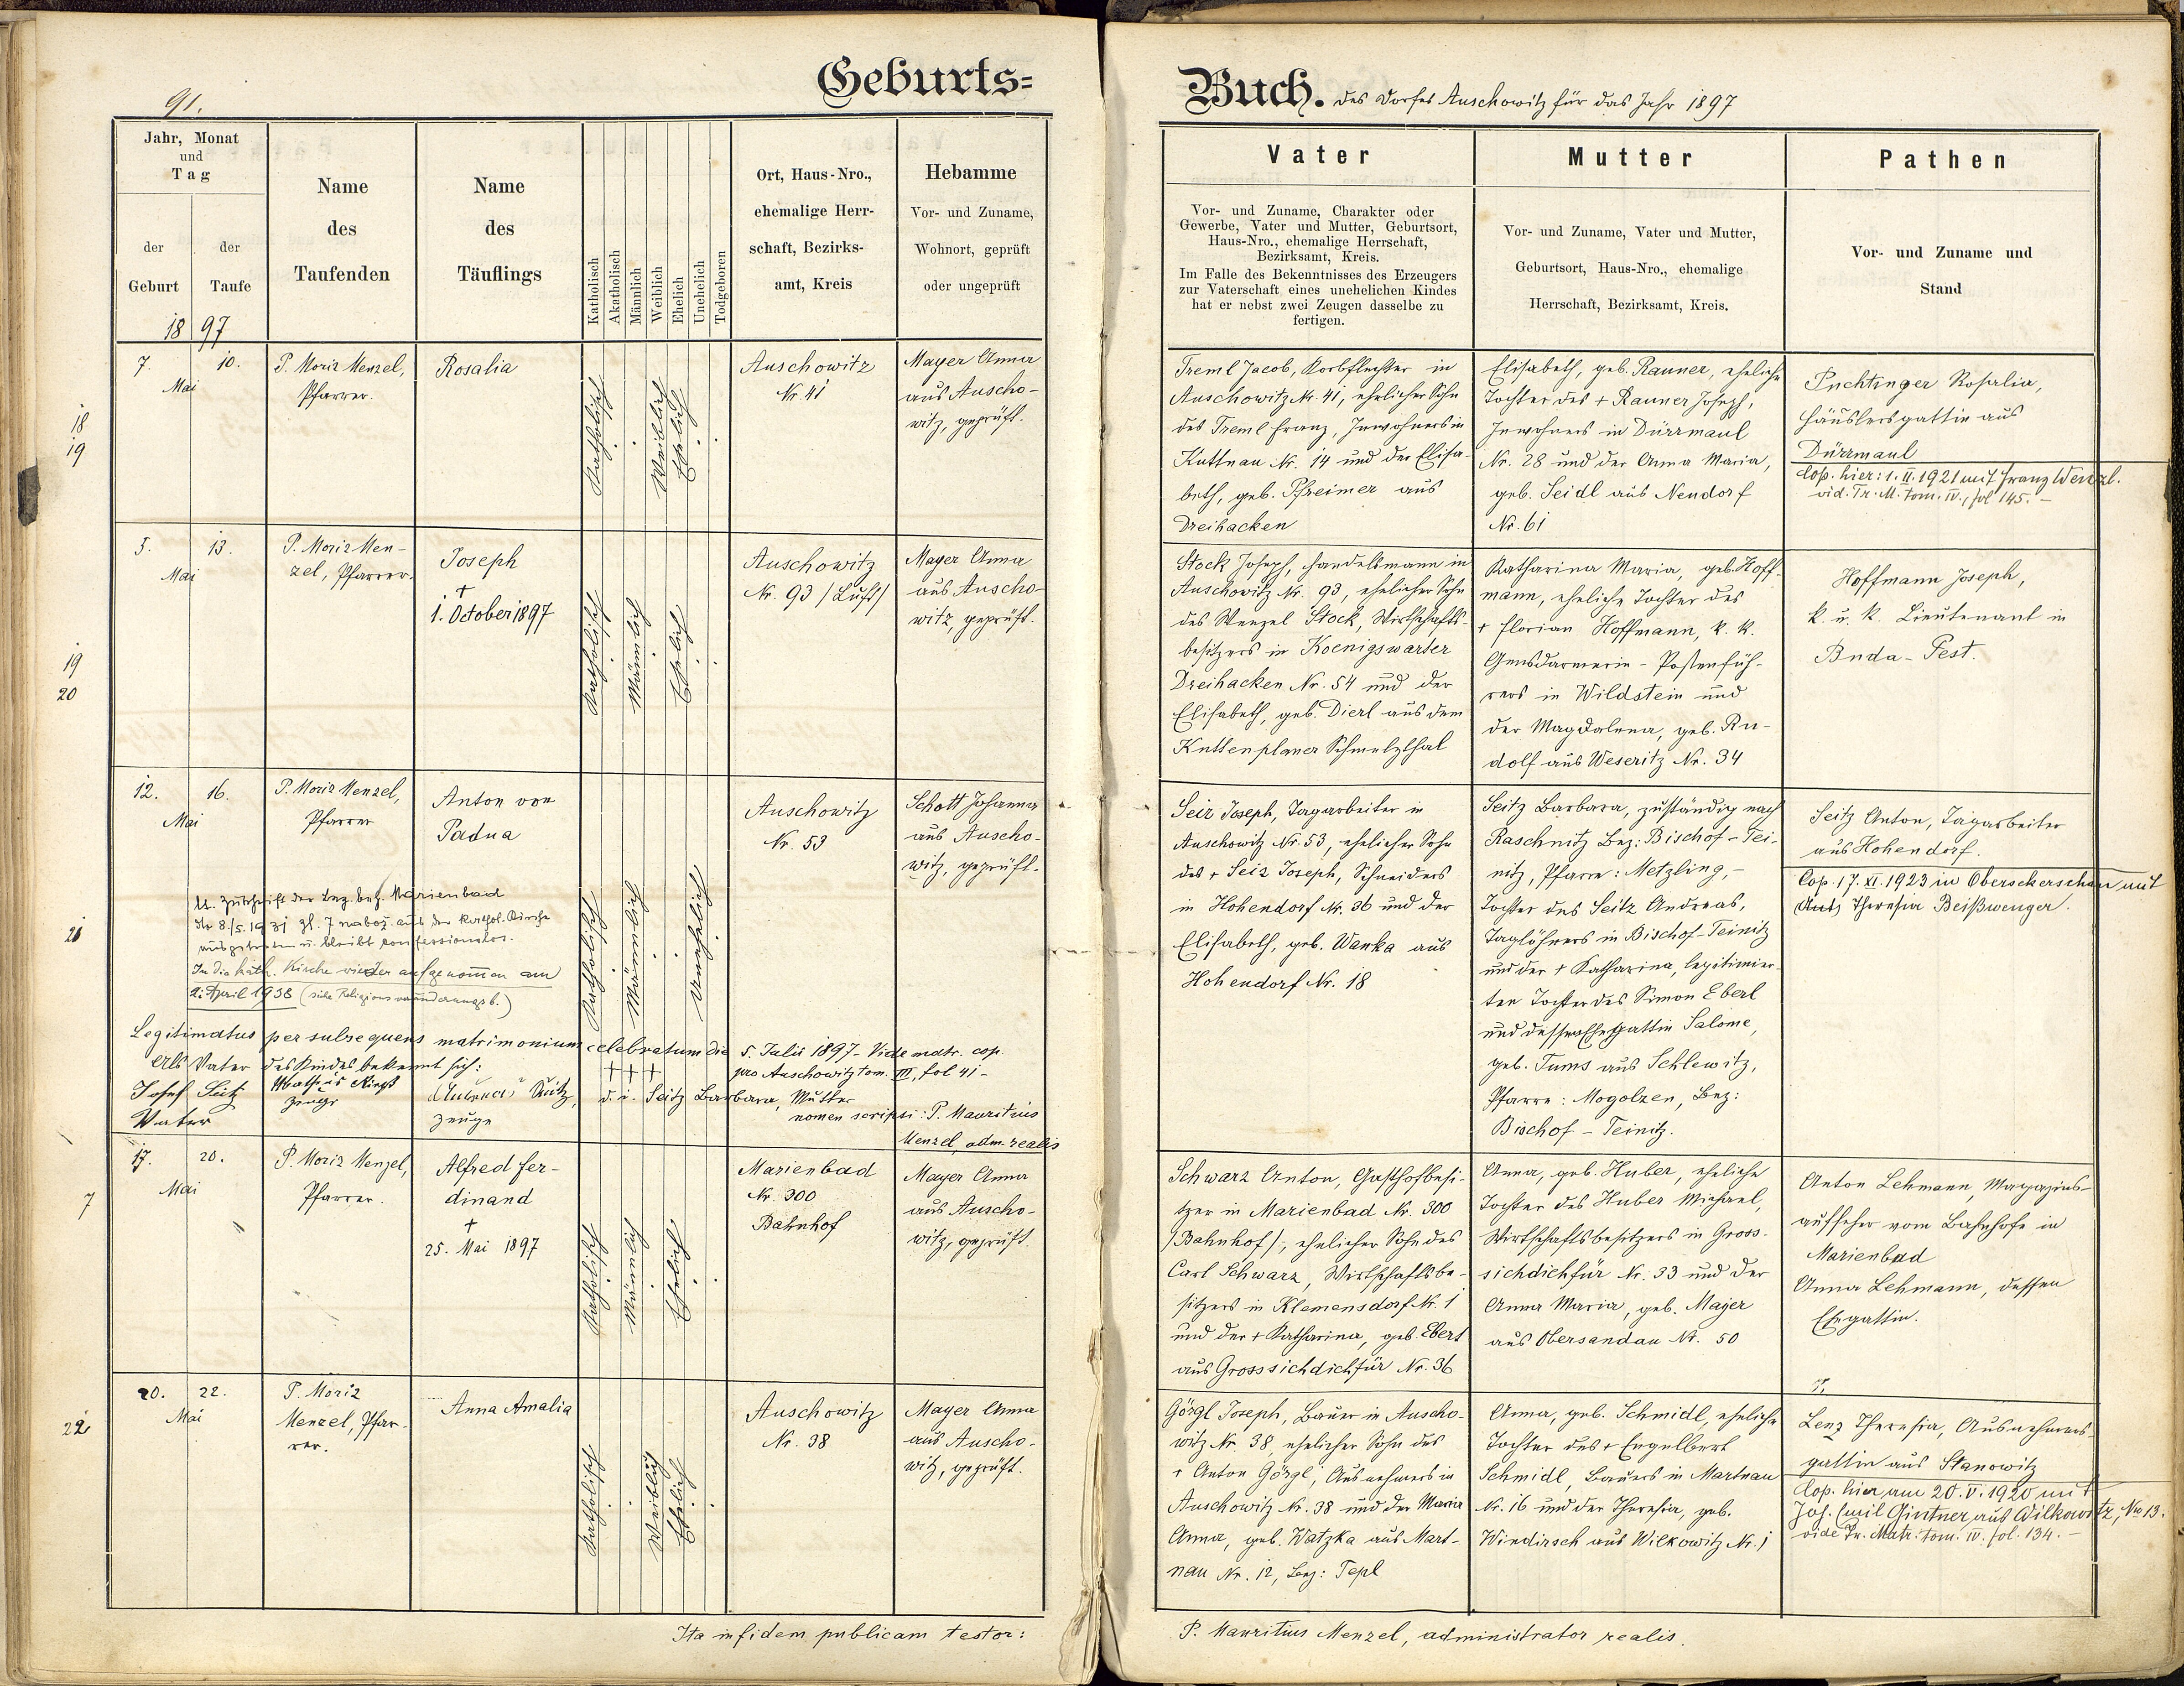 91.
Geburts=
Jahr, Monat
und
Tag
der
Geburt
der
Taufe
Name
des
Taufenden
Name
des
Täuflings
Katholisch
Akatholisch
Männlich
Weiblich
Ehelich
Unehelich
Todgeboren
Ort, Haus-Nro.,
ehemalige Herr-
schaft, Bezirks-
amt, Kreis
Hebamme
Vor- und Zuname,
Wohnort, geprüft
oder ungeprüft
1897
18
19
7.
10.
Mai
P. Moriz Menzel,
Pfarrer.
Rosalia
Katholisch
Weiblich
Ehelich
Auschowitz
Nr. 41
Mayer Anna
aus Auscho-
witz, geprüft.
19
20
5.
13.
Mai
P. Moriz Men-
zel, Pfarrer.
Joseph
†
1. October 1897
Katholisch
Männlich
Ehelich
Auschowitz
Nr. 93 /Luft/
Mayer Anna
aus Auscho-
witz, geprüft.
21
12.
16.
Mai
P. Moriz Menzel,
Pfarrer
Anton von
Padua
Katholisch
Männlich
Unehelich
Auschowitz
Nr. 53
Schott Johanna
aus Auscho-
witz, geprüft.
Lt. Zuschrift der Bez. beh. Marienbad
8./5. 1931 Zl. 7 nabož. aus der kathol. Kirche
ausgetreten u. bleibt konfessionslos.
In die kath. Kirche wieder aufgenommen am
2. April 1938 (siehe Religionsveränderungsb.)
Legitimatus per subsequens matrimonium celebratum die 5. Julii 1897 - Vide matr. cop.
pro Auschowitz tom. III, fol 41 -
Als Vater des Kindes bekennt sich:
+++
Josef Seitz
Vater
Zeuge
Seitz,
Zeuge
d. i. Seitz Barbara, Mutter
nomen scripsi: P. Mauritius
Menzel, adm. realis
7
17.
20.
Mai
P. Moriz Menzel,
Pfarrer.
Alfred Fer-
dinand
†
25. Mai 1897
Katholisch
Männlich
Ehelich
Marienbad
Nr. 300
Bahnhof
Mayer Anna
aus Auscho-
witz, geprüft.
22
20.
22.
Mai
P. Moriz
Menzel, Pfar-
rer.
Anna Amalia
Katholisch
Weiblich
Ehelich
Auschowitz
Nr. 38
Mayer Anna
aus Auscho-
witz, geprüft.
Ita in fidem publicam testor:
Buch. des Dorfes Auschowitz für das Jahr 1897
Vater
Vor- und Zuname, Charakter oder
Gewerbe, Vater und Mutter, Geburtsort,
Haus-Nro., ehemalige Herrschaft,
Bezirksamt, Kreis.
Im Falle des Bekenntnisses des Erzeugers
zur Vaterschaft eines unehelichen Kindes
hat er nebst zwei Zeugen dasselbe zu
fertigen.
Mutter
Vor- und Zuname, Vater und Mutter,
Geburtsort, Haus-Nro., ehemalige
Herrschaft, Bezirksamt, Kreis.
Pathen
Vor- und Zuname und
Stand
Treml Jacob, Korbflechter in
Auschowitz Nr. 41, ehelicher Sohn
des Treml Franz, Inwohners in
Kuttnau Nr. 14 und der Elisa-
beth, geb. Pfreimer aus
Dreihacken
Elisabeth, geb. Rauner, eheliche
Tochter des + Rauner Joseph,
Inwohners in Dürrmaul
Nr. 28 und der Anna Maria,
geb. Seidl aus Neudorf
Nr. 61
Puchtinger Rosalia,
Häuslersgattin aus
Dürrmaul
Cop. hier: 1. II. 1921 mit Franz Wenzl.
vid. Tr. M. tom. IV., fol 145. -
Stock Joseph, Handelsmann in
Auschowitz Nr. 93, ehelicher Sohn
des Wenzel Stock, Wirthschafts-
besitzers in Koenigswarter
Dreihacken Nr. 54 und der
Elisabeth, geb. Dierl aus dem
Kuttenplaner Schmelzthal
Katharina Maria, geb. Hoff-
mann, eheliche Tochter des
+ Florian Hoffmann, k. k.
Gensdarmerie-Postenfüh-
rers in Wildstein und
der Magdalena, geb. Ru-
dolf aus Weseritz Nr. 34
Hoffmann Joseph,
k. u. k. Lieutenant in
Buda-Pest.
Seiz Joseph, Tagarbeiter in
Auschowitz Nr. 53, ehelicher Sohn
des + Seiz Joseph, Schneiders
in Hohendorf Nr. 36 und der
Elisabeth, geb. Wanka aus
Hohendorf Nr. 18
Seitz Barbara, zuständig nach
Raschnitz Bez: Bischof-Tei-
nitz, Pfarre: Metzling, -
Tochter des Seitz Andreas,
Taglöhners in Bischof-Teinitz
und der + Katharina, legitimier-
ten Tochter des Simon Eberl
und dessen Ehegattin Salome,
geb. Tums aus Schlewitz,
Pfarre: Mogolzen, Bez:
Bischof-Teinitz.
Seitz Anton, Tagarbeiter
aus Hohendorf.
Cop. 17. XI. 1923 in Obersekerschan mit
Theresia Beißwenger.
Schwarz Anton, Gasthofbesi-
tzer in Marienbad Nr. 300
/Bahnhof/, ehelicher Sohn des
Carl Schwarz, Wirthschaftsbe-
sitzers in Klemensdorf Nr. 1
und der + Katharina, geb. Ebert
aus Grosssichdichfür Nr. 36
Anna, geb. Huber, eheliche
Tochter des Huber Michael,
Wirthschaftsbesitzers in Gross-
sichdichfür Nr. 33 und der
Anna Maria, geb. Mayer
aus Obersandau Nr. 50
Anton Lehmann, Magazins-
aufseher vom Bahnhofe in
Marienbad
Anna Lehmann, dessen
Ehegattin.
Görgl Joseph, Bauer in Auscho-
witz Nr. 38, ehelicher Sohn des
+ Anton Görgl, Ausnehmers in
Auschowitz Nr. 38 und der Maria
Anna, geb. Watzka aus Mart-
nau Nr. 12, Bez: Tepl
Anna, geb. Schmidl, eheliche
Tochter des + Engelbert
Schmidl, Bauers in Martnau
Nr. 16 und der Theresia, geb.
Windirsch aus Wilkowitz Nr. 1
Lenz Theresia, Ausnehmers-
gattin aus Stanowitz
Cop. hier am 20. V. 1920 mit
Joh. Emil Gintner aus Wilkowitz, No 13.
vide Tr. Matr. tom. IV. fol. 134. -
P. Mauritius Menzel, administrator realis.